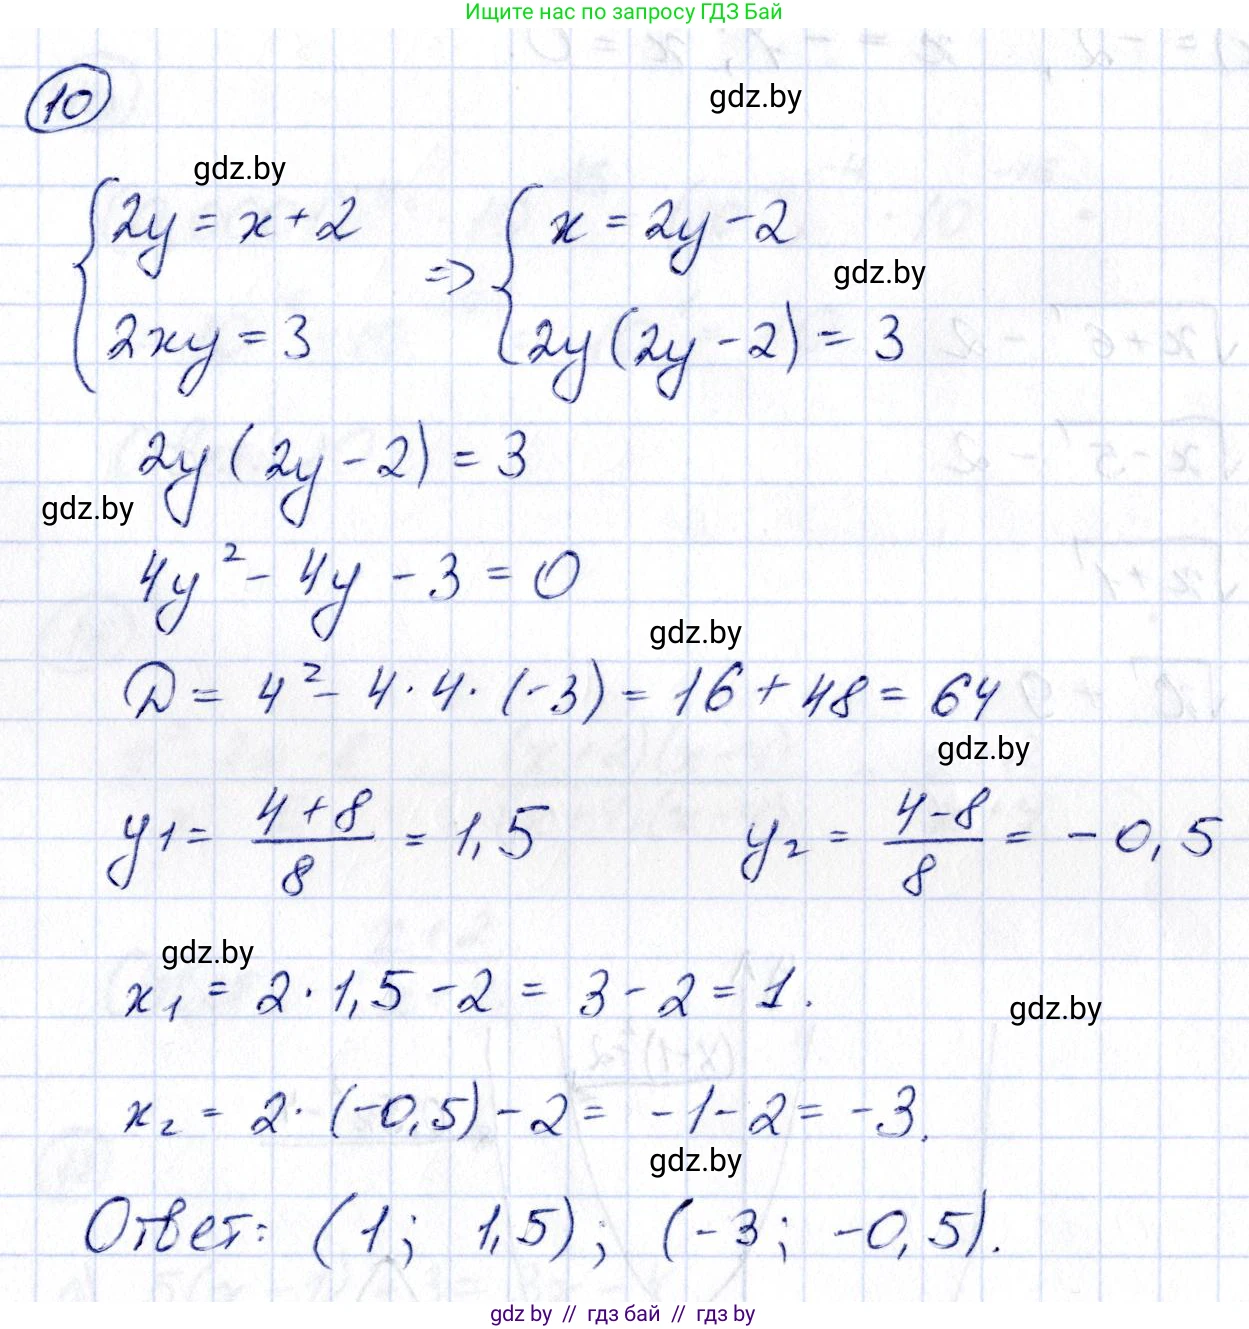 Ищите нас по запросу ГДЗ Бай
10
gdz.by
gdz.by
{ 2y = x + 2
2xy = 3
=> { x = 2y - 2
2y(2y - 2) = 3
gdz.by
2y(2y - 2) = 3
gdz.by
4y² - 4y - 3 = 0
gdz.by
D = 4² - 4 · 4 · (-3) = 16 + 48 = 64
gdz.by
y1 = (4 + 8)/8 = 1,5 y₂ = (4 - 8)/8 = -0,5
gdz.by
x₁ = 2 · 1,5 - 2 = 3 - 2 = 1.
gdz.by
x₂ = 2 · (-0,5) - 2 = -1 - 2 = -3.
gdz.by
Ответ: (1; 1,5); (-3; -0,5).
gdz.by // гдз бай // гдз by